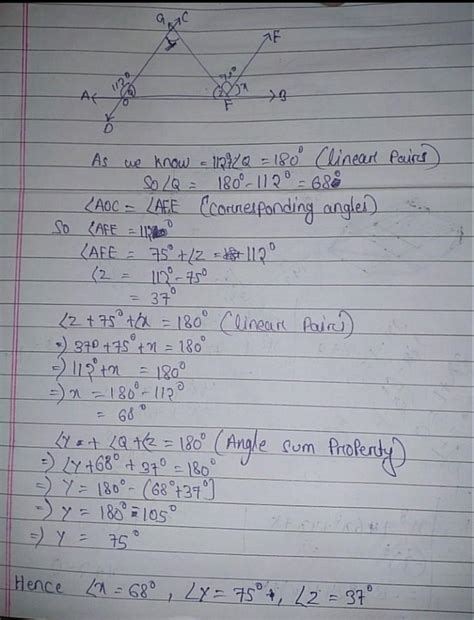 G C
E
y
112°
75°
A Q z x B
O F
D
As we know = 112°+∠Q = 180° (linear Pairs)
So ∠Q = 180° - 112° = 68°
∠AOC = ∠AFE (corresponding angles)
So ∠AFE = 112°
∠AFE = 75° + ∠Z = 112°
∠Z = 112° - 75°
= 37°
∠Z + 75° + ∠x = 180° (linear Pairs)
=) 37° + 75° + x = 180°
=) 112° + x = 180°
=) x = 180° - 112°
= 68°
∠Y + ∠Q + ∠Z = 180° (Angle sum Property)
=) ∠Y + 68° + 37° = 180°
=) Y = 180° - (68° + 37°]
=) Y = 180° - 105°
=) Y = 75°
Hence ∠x = 68°, ∠Y = 75°, ∠Z = 37°